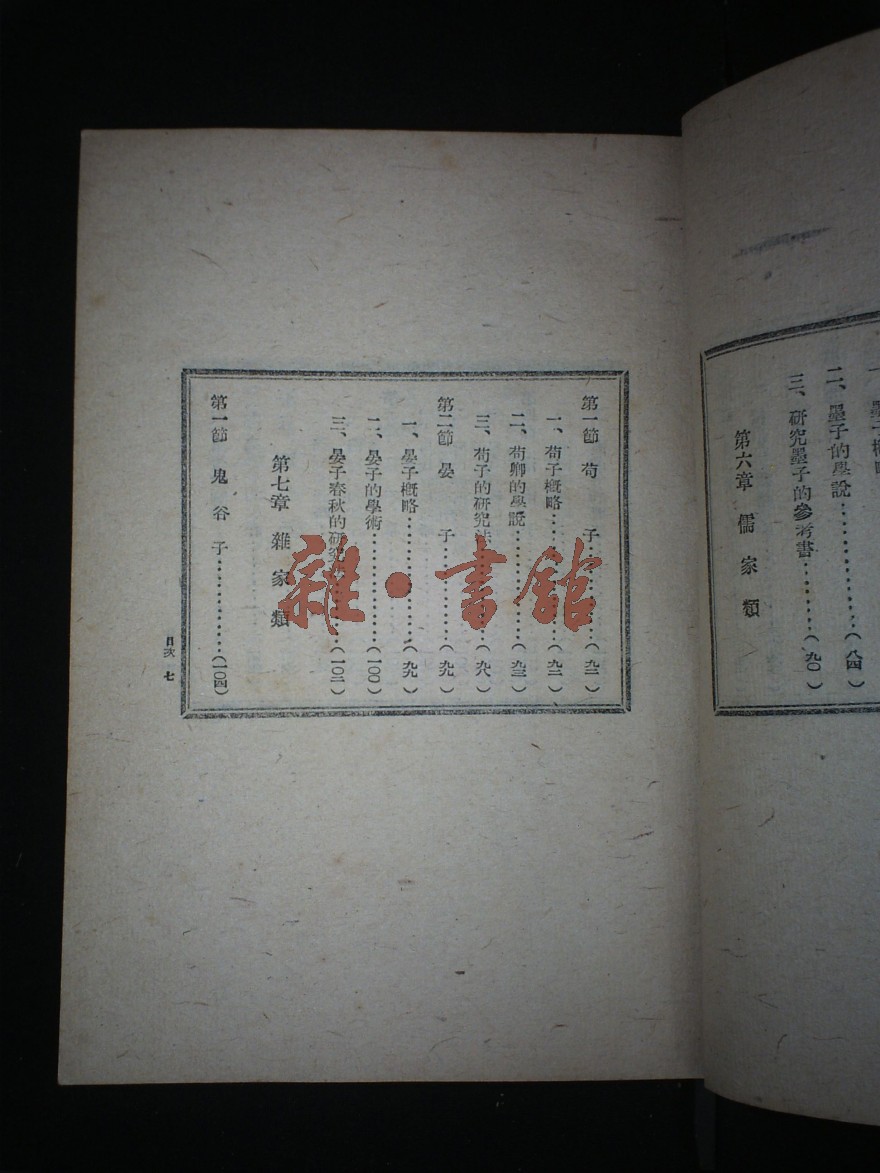 二、墨子的學說…………(八四)
三、研究墨子的參考書………(九〇)
第六章 儒家類
第一節 荀子…………(九二)
一、荀子概略…………(九二)
二、荀卿的學說…………(九三)
三、荀子的研究…………(九八)
第二節 晏子…………(九九)
一、晏子概略…………(九九)
二、晏子的學術…………(一〇〇)
三、晏子春秋的研究…………(一〇二)
第七章 雜家類
第一節 鬼谷子…………(一〇四)
目次 七
雜·書館